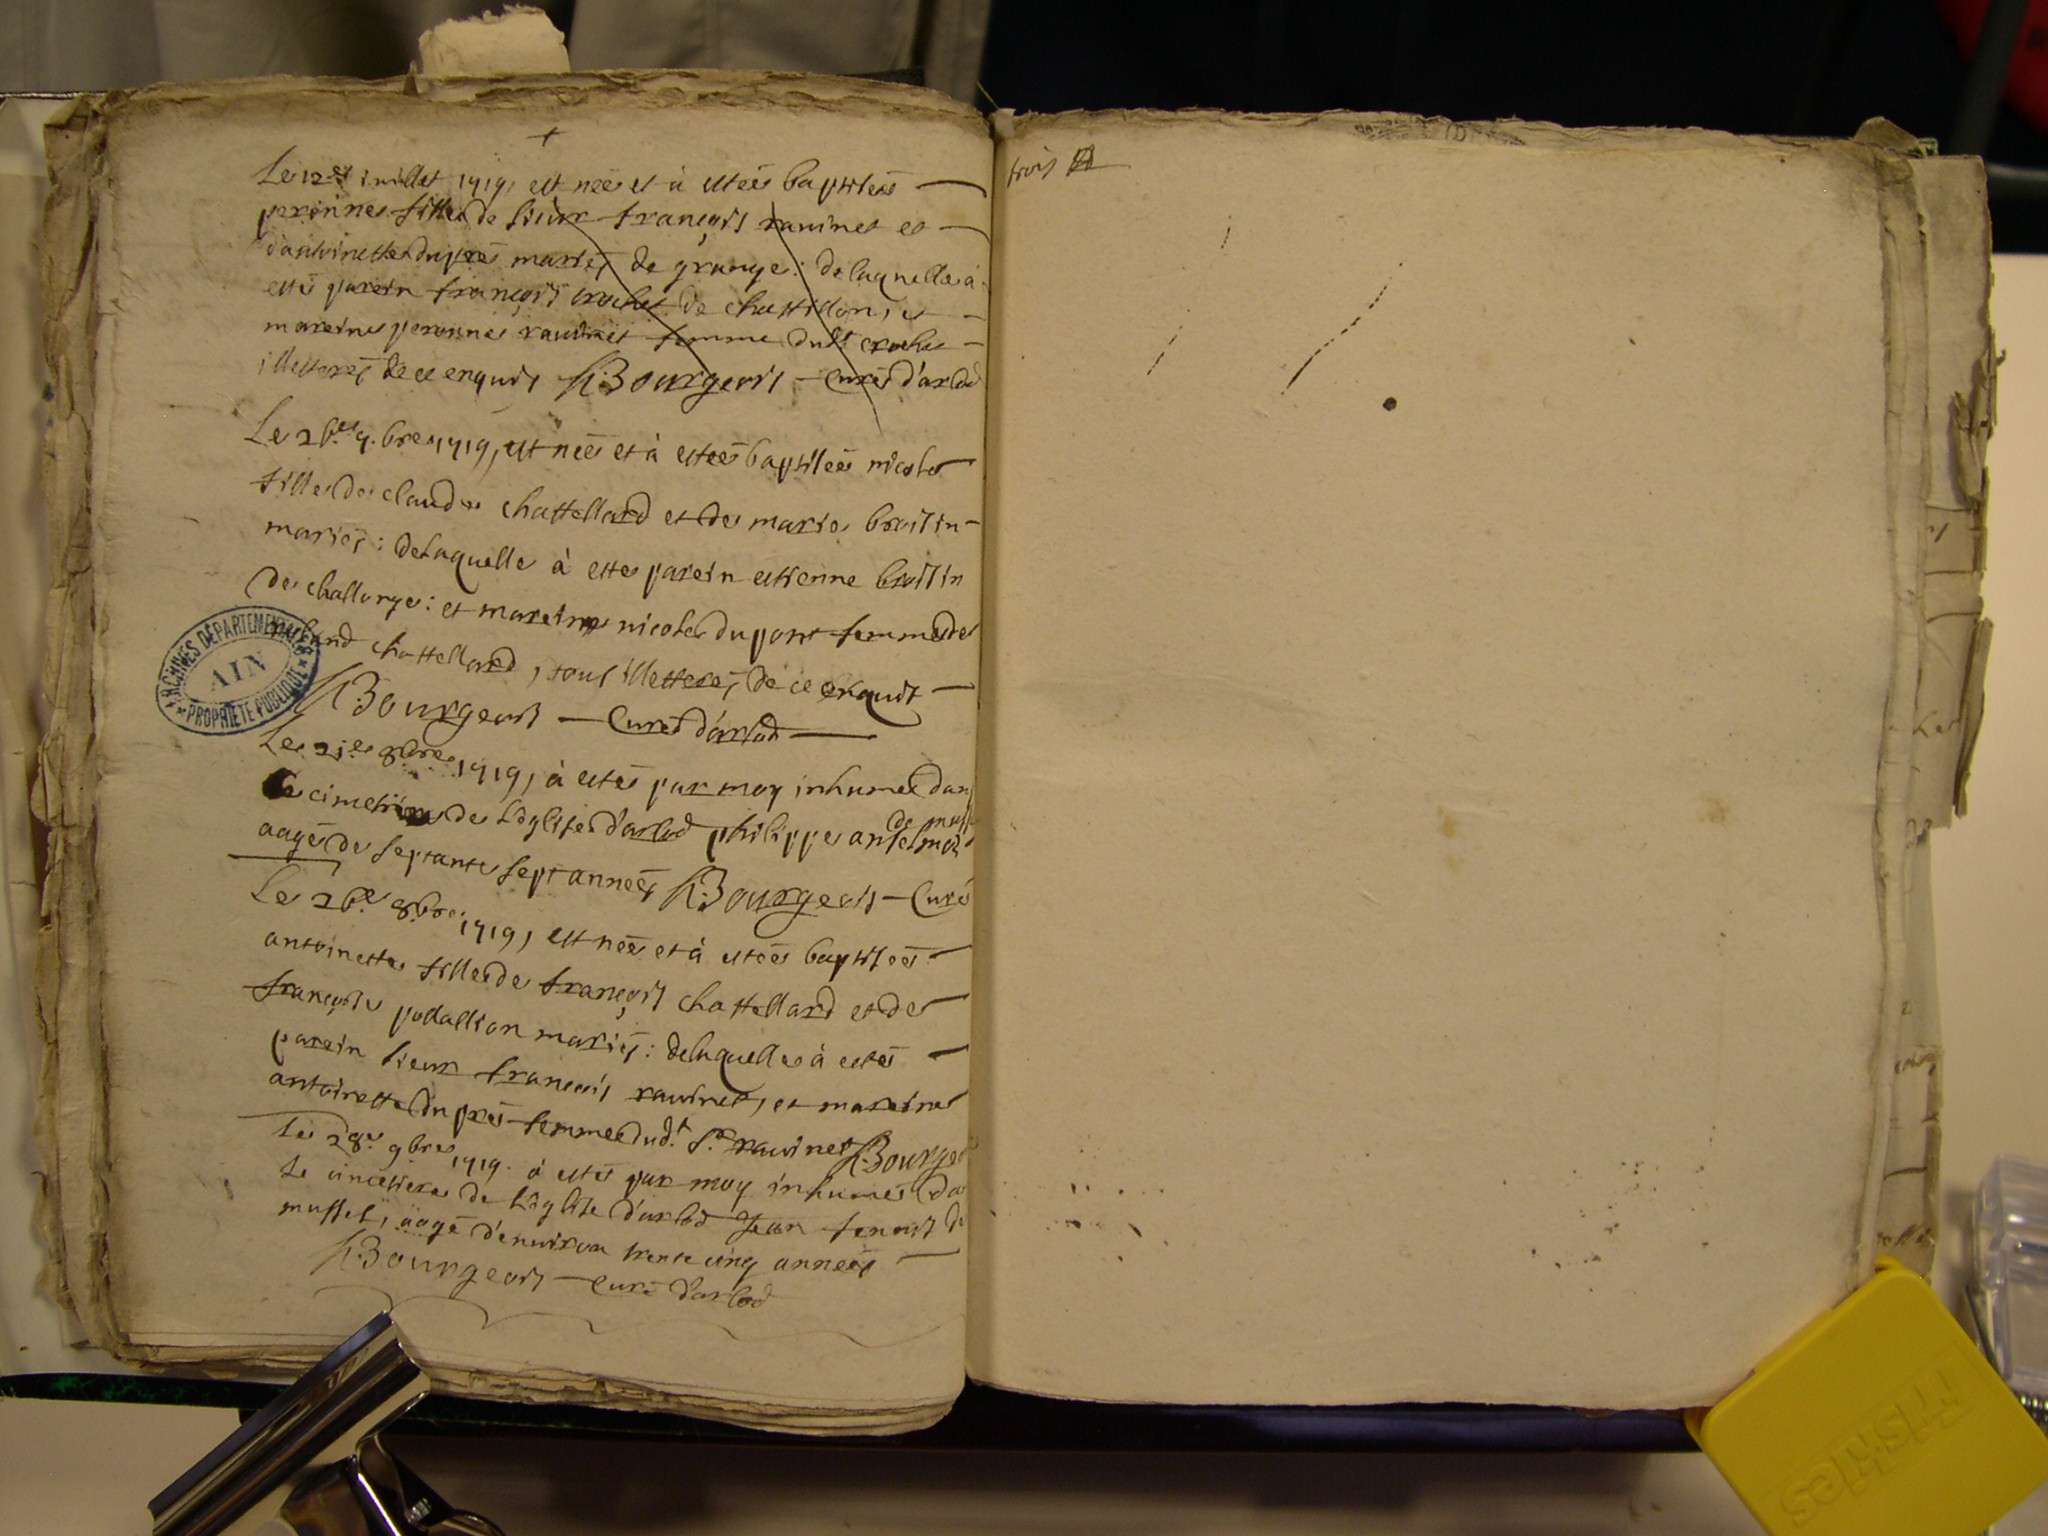 Le 12e juillet 1719, est néé et à estéé baptiséé
peronne fille de sieur françois ravinet et
d'antoinette dupré mariés de grange: delaquelle à
esté parein françois crochet de chattillon, et
mareine peronne ravinet femme dudt crochet
illetterés de ce enquis Bourgeois Curé d'arlod
Le 26e 7.bre 1719, est néé et à estéé baptiséé nicole
fille de claude chattellard et de marie
mariés: delaquelle à esté parein estienne
de challonge: et mareine nicole dupont femme de
chattellard, tous illetterés de ce enquis
Bourgeois Curé d'arlod
Le 21e 8bre 1719, à esté par moy inhumé dans
Le cimetiere de L'églisse d'arlod philippe anselmoz
de muss
aagé de septante sept annéés Bourgeois Curé
Le 26e 8.bre 1719, est néé et à estéé baptiséé
antoinette fille de françois chattellard et de
françoise mariés: delaquelle à esté
parein sieur françois ravinet, et mareine
antoinette dupré femme dud.t S.r ravinet Bourgeo
Le 28e 9bre 1719. à esté par moy inhumé da
Le cimetiere de L'églisse d'arlod Jean fenoist de
mussel, aagé d'environ trente cinq annéés
Bourgeois Curé d'arlod
trois
ARCHIVES DÉPARTEMENTALES
AIN
* PROPRIÉTÉ PUBLIQUE *
Friskies